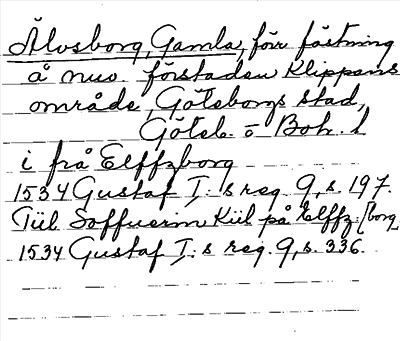 Älvsborg, Gamla, förr fästning
å nuv. förstaden Klippans
område, Göteborgs stad,
Göteb. o Boh. l
i frå Elffzborg
1534 Gustaf I:s reg. 9, s. 197.
Tiil Soffuerin Kiil på Elffz-/borg
1534 Gustaf I:s reg. 9, s. 336.